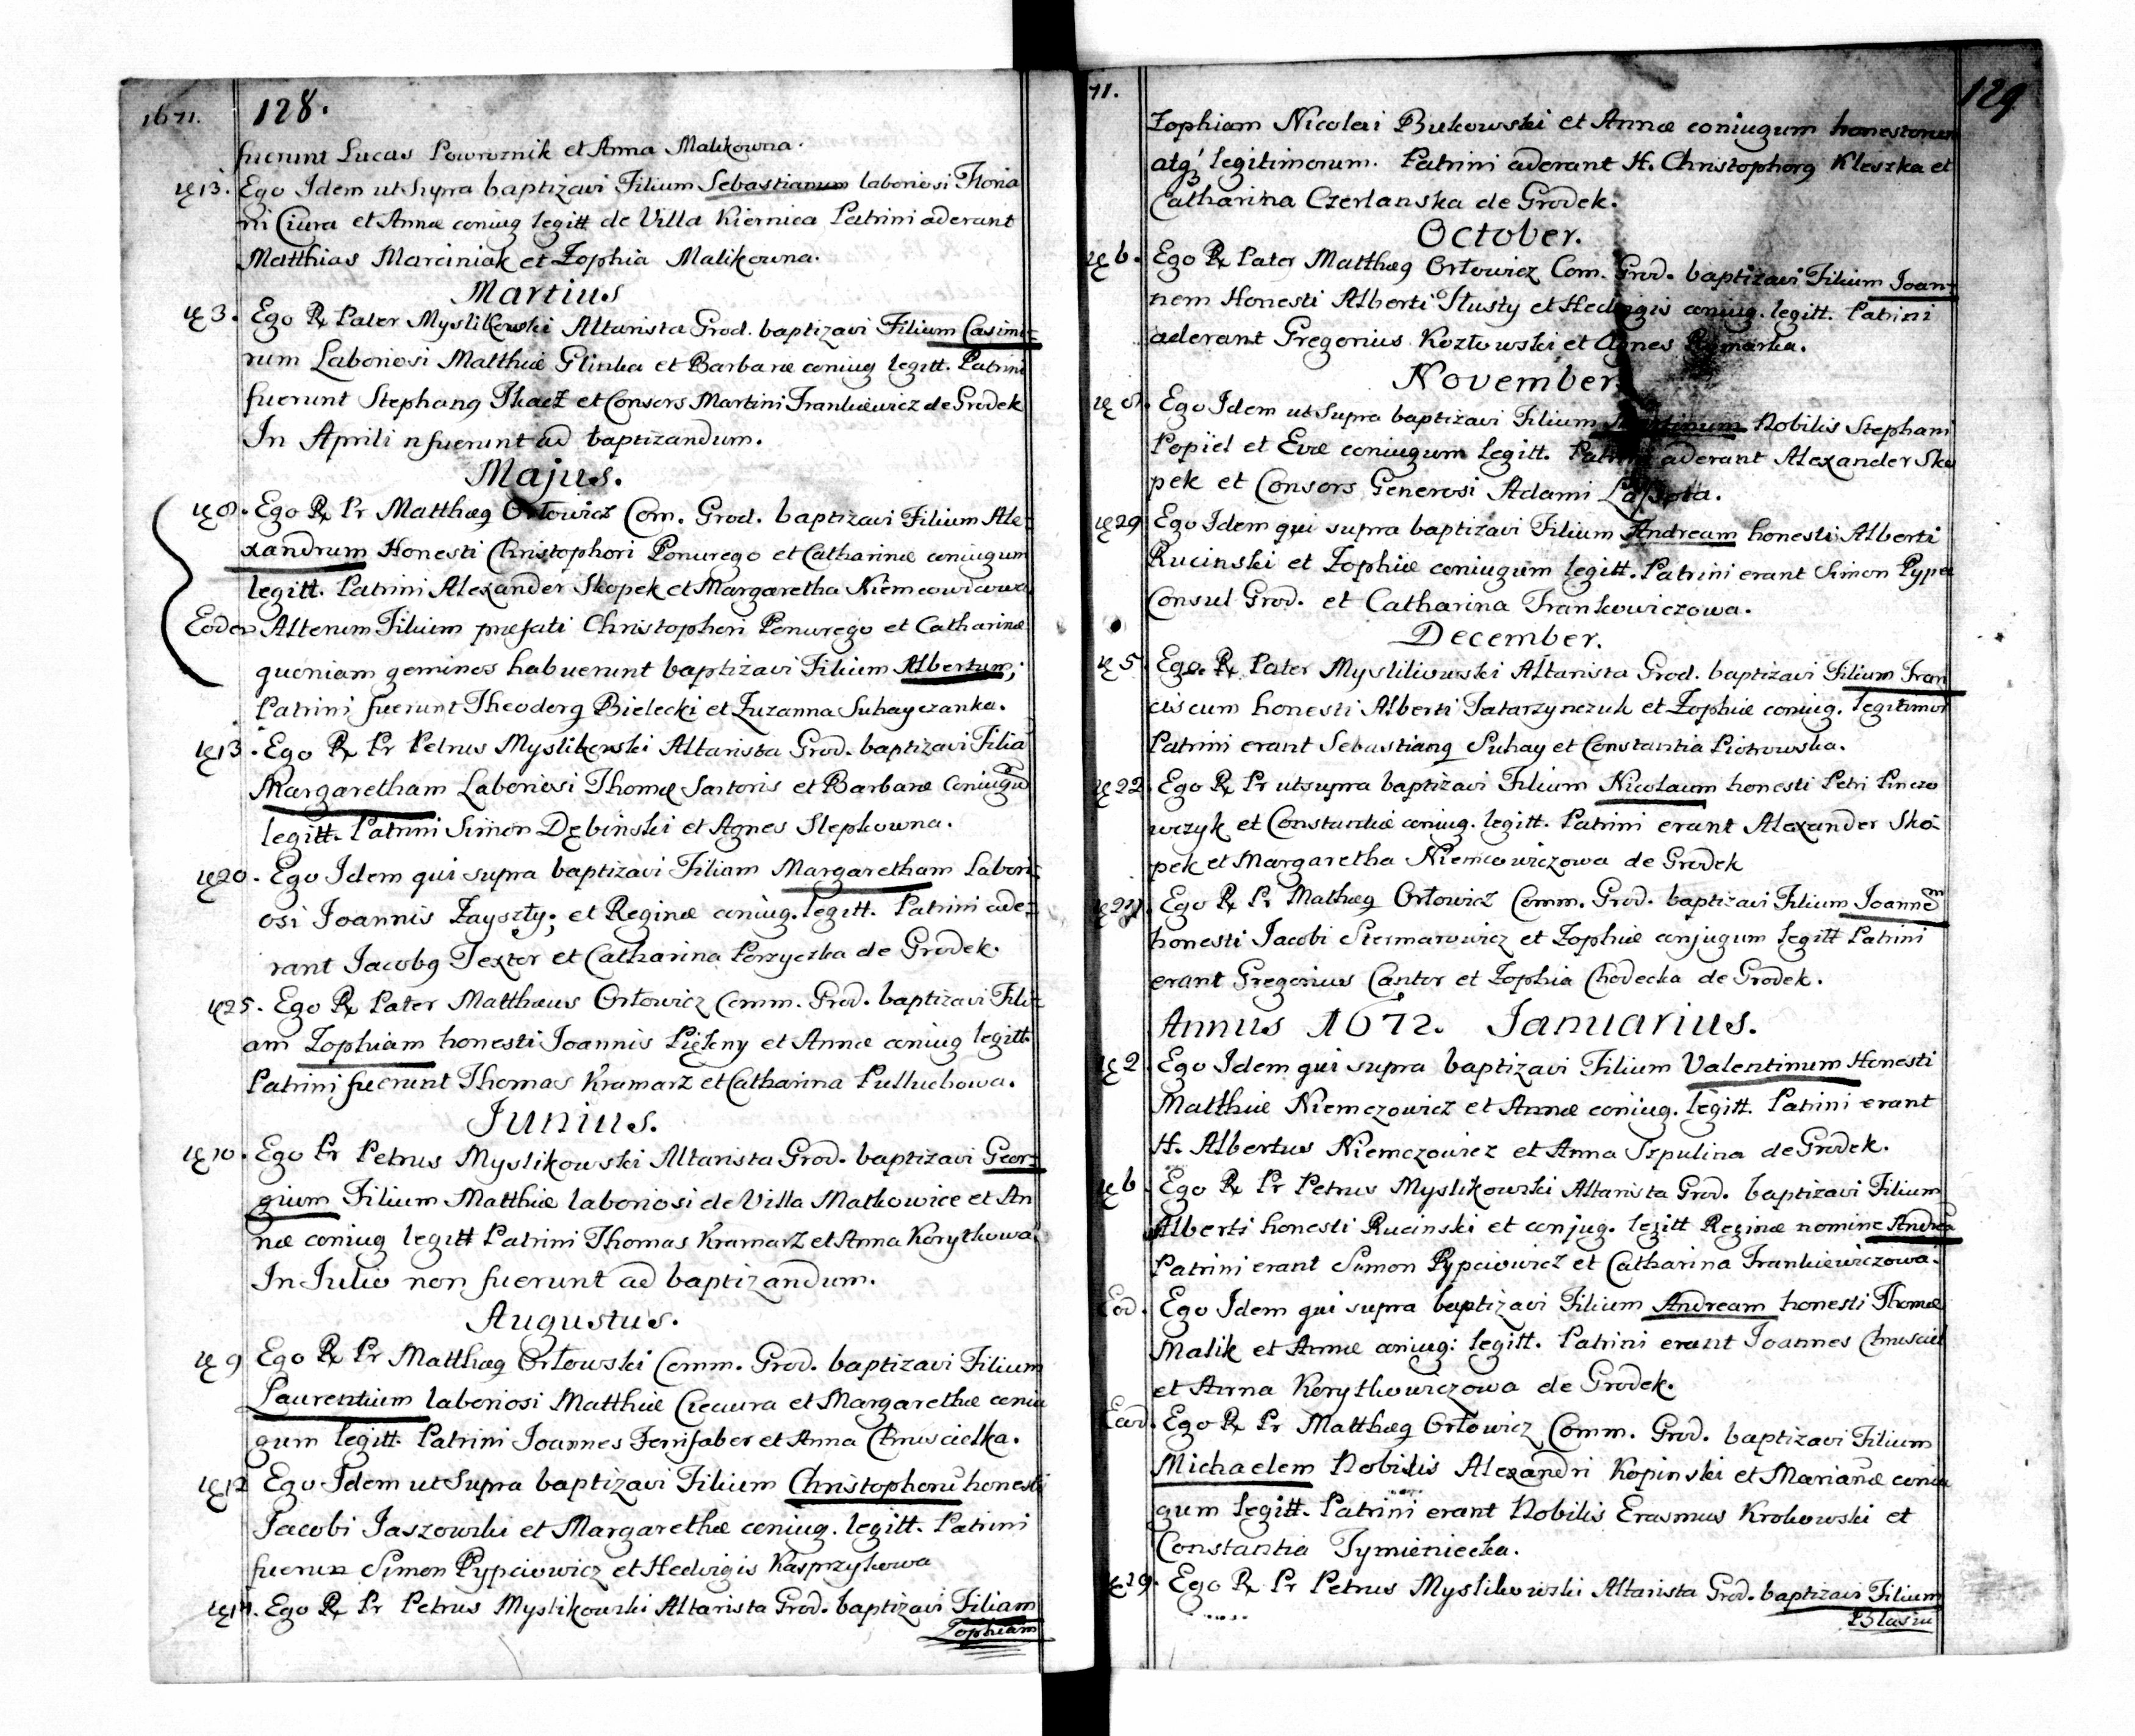 1671.
128.
fuerunt Lucas Powroznik et Anna Malikowna.
13. Ego Idem ut Supra baptizavi Filium Sebastianum laboriosi Floria
ni Ciura et Annæ coniug legitt de Villa Kiernica Patrini aderant
Matthias Marciniak et Zophia Malikowna.
Martius
3. Ego Rx Pater Myslikowski Altarista Grod. baptizavi Filium Casimi=
rum Laboriosi Matthiæ Glinka et Barbaræ coniug legitt. Patrini
fuerunt Stephang Tkacz et Consors Martini Frankiewicz de Grodek
In Aprili n fuerunt ad baptizandum.
Majus.
8. Ego Rx Pr Matthæg Orłowicz Com. Grod. baptizavi Filium Ale=
xandrum Honesti Christophori Ponurego et Catharinæ coniugum
legitt. Patrini Alexander Skopek et Margaretha
Eodem Alterum Filium prefati Christophori Ponurego et Catharinæ
quoniam geminos habuerunt baptizavi Filium Albertum;
Patrini fuerunt Theodorg Bielecki et Zuzanna Suhayczanka.
13. Ego Rx Pr Petrus Myslikowski Altarista Grod. baptizavi Filia
Margaretham Laboriosi Thomæ Sartoris et Barbaræ Coniugum
legitt. Patrini Simon Dębinski et Agnes Slepkowna.
20. Ego Idem qui supra baptizavi Filiam Margaretham Labori=
osi Joannis Zayszły; et Reginæ coniug. legitt. Patrini ade=
rant Jacobg Textor et Catharina de Grodek.
25. Ego Rx Pater Matthæus Orłowicz Comm. Grod. baptizavi Fili=
am Zophiam honesti Joannis et Annæ coniug legitt.
Patrini fuerunt Thomas Kramarz et Catharina Pulluchowa.
Junius.
10. Ego Pr Petrus Myslikowski Altarista Grod. baptizavi Geor=
gium Filium Matthiæ laboriosi de Villa Malkowice et An
næ coniug legitt Patrini Thomas Kramarz et Anna Korytkowa.
In Julio non fuerunt ad baptizandum.
Augustus.
9 Ego Rx Pr Matthæg Orłowski Comm. Grod. baptizavi Filium
Laurentium laboriosi Matthiæ et Margarethæ coniu
gum legitt. Patrini Joannes Ferrifaber et Anna Chmscielka.
12 Ego Idem ut Supra baptizavi Filium Christophorū honesti
Jacobi Jaszowski et Margarethæ coniug. legitt. Patrini
fuerun Simon Pypciowicz et Hedvigis Kasprzykowa
14. Ego Rx Pr Petrus Myslikowski Altarista Grod. baptizavi Filiam
Zophiam
71.
129
Zophiam Nicolai Bukowski et Annæ coniugum honestorum
atq legitimorum. Patrini aderant H. Christophorg Kleszka et
Catharina Czerlanska de Grodek.
October.
6. Ego Rx Pater Matthæg Orłowicz Com. Grod. baptizavi Filium Joan=
nem Honesti Alberti Tłusty et Hedvigis coniug. legitt. Patrini
aderant Gregorius Kozłowski et Agnes
November.
8. Ego Idem ut Supra baptizavi Filium Nobilis Stephani
Popiel et Evæ coniugum Legitt. Patrini aderant Alexander Sko
pek et Consors Generosi Adami
29 Ego Idem qui supra baptizavi Filium Andream honesti Alberti
Rucinski et Zophiæ coniugum legitt. Patrini erant Simon
Consul Grod. et Catharina Frankowiczowa.
December.
5 Ego Rx Pater Myslikowski Altarista Grod. baptizavi Filium Fran
ciscum honesti Alberti Tatarzynczuk et Zophiæ coniug. legitimor
Patrini erant Sebastiang Suhay et Constantia Piotrowska.
22 Ego Rx Pr ut supra baptizavi Filium Nicolaum honesti Petri Pinczo
wczyk et Constantiæ coniug. legitt. Patrini erant Alexander Sko=
pek et Margaretha Niemcowiczowa de Grodek
27. Ego Rx Pr Mathæg Orłowicz Comm. Grod. baptizavi Filium Joannem
honesti Jacobi et Zophiæ conjugum legitt Patrini
erant Gregorius Cantor et Zophia Chodecka de Grodek.
Annus 1672. Januarius.
2 Ego Idem qui supra baptizavi Filium Valentinum Honesti
Matthiæ Niemczowicz et Annæ coniug. legitt. Patrini erant
H. Albertus Niemczowicz et Anna Szpulina de Grodek.
6 Ego Rx Pr Petrus Myslikowski Altarista Grod. baptizavi Filium
Alberti honesti Rucinski et conjug. legitt Reginæ nomine Andrea
Patrini erant Simon Pypciowicz et Catharina Frankiewiczowa.
Eod. Ego Idem qui supra baptizavi Filium Andream honesti Thomæ
Malik et Annæ coniug: legitt. Patrini erant Joannes Chmsciel
et Anna Korytkowiczowa de Grodek.
Eod. Ego Rx Pr Matthæg Orłowicz Comm. Grod. baptizavi Filium
Michaelem Nobilis Alexandri Kopinski et Marianæ coniu
gum legitt. Patrini erant Nobilis Erasmus Krokowski et
Constantia Tymieniecka.
19. Ego Rx Pr Petrus Myslikowski Altarista Grod. baptizavi Filium
Blasiu